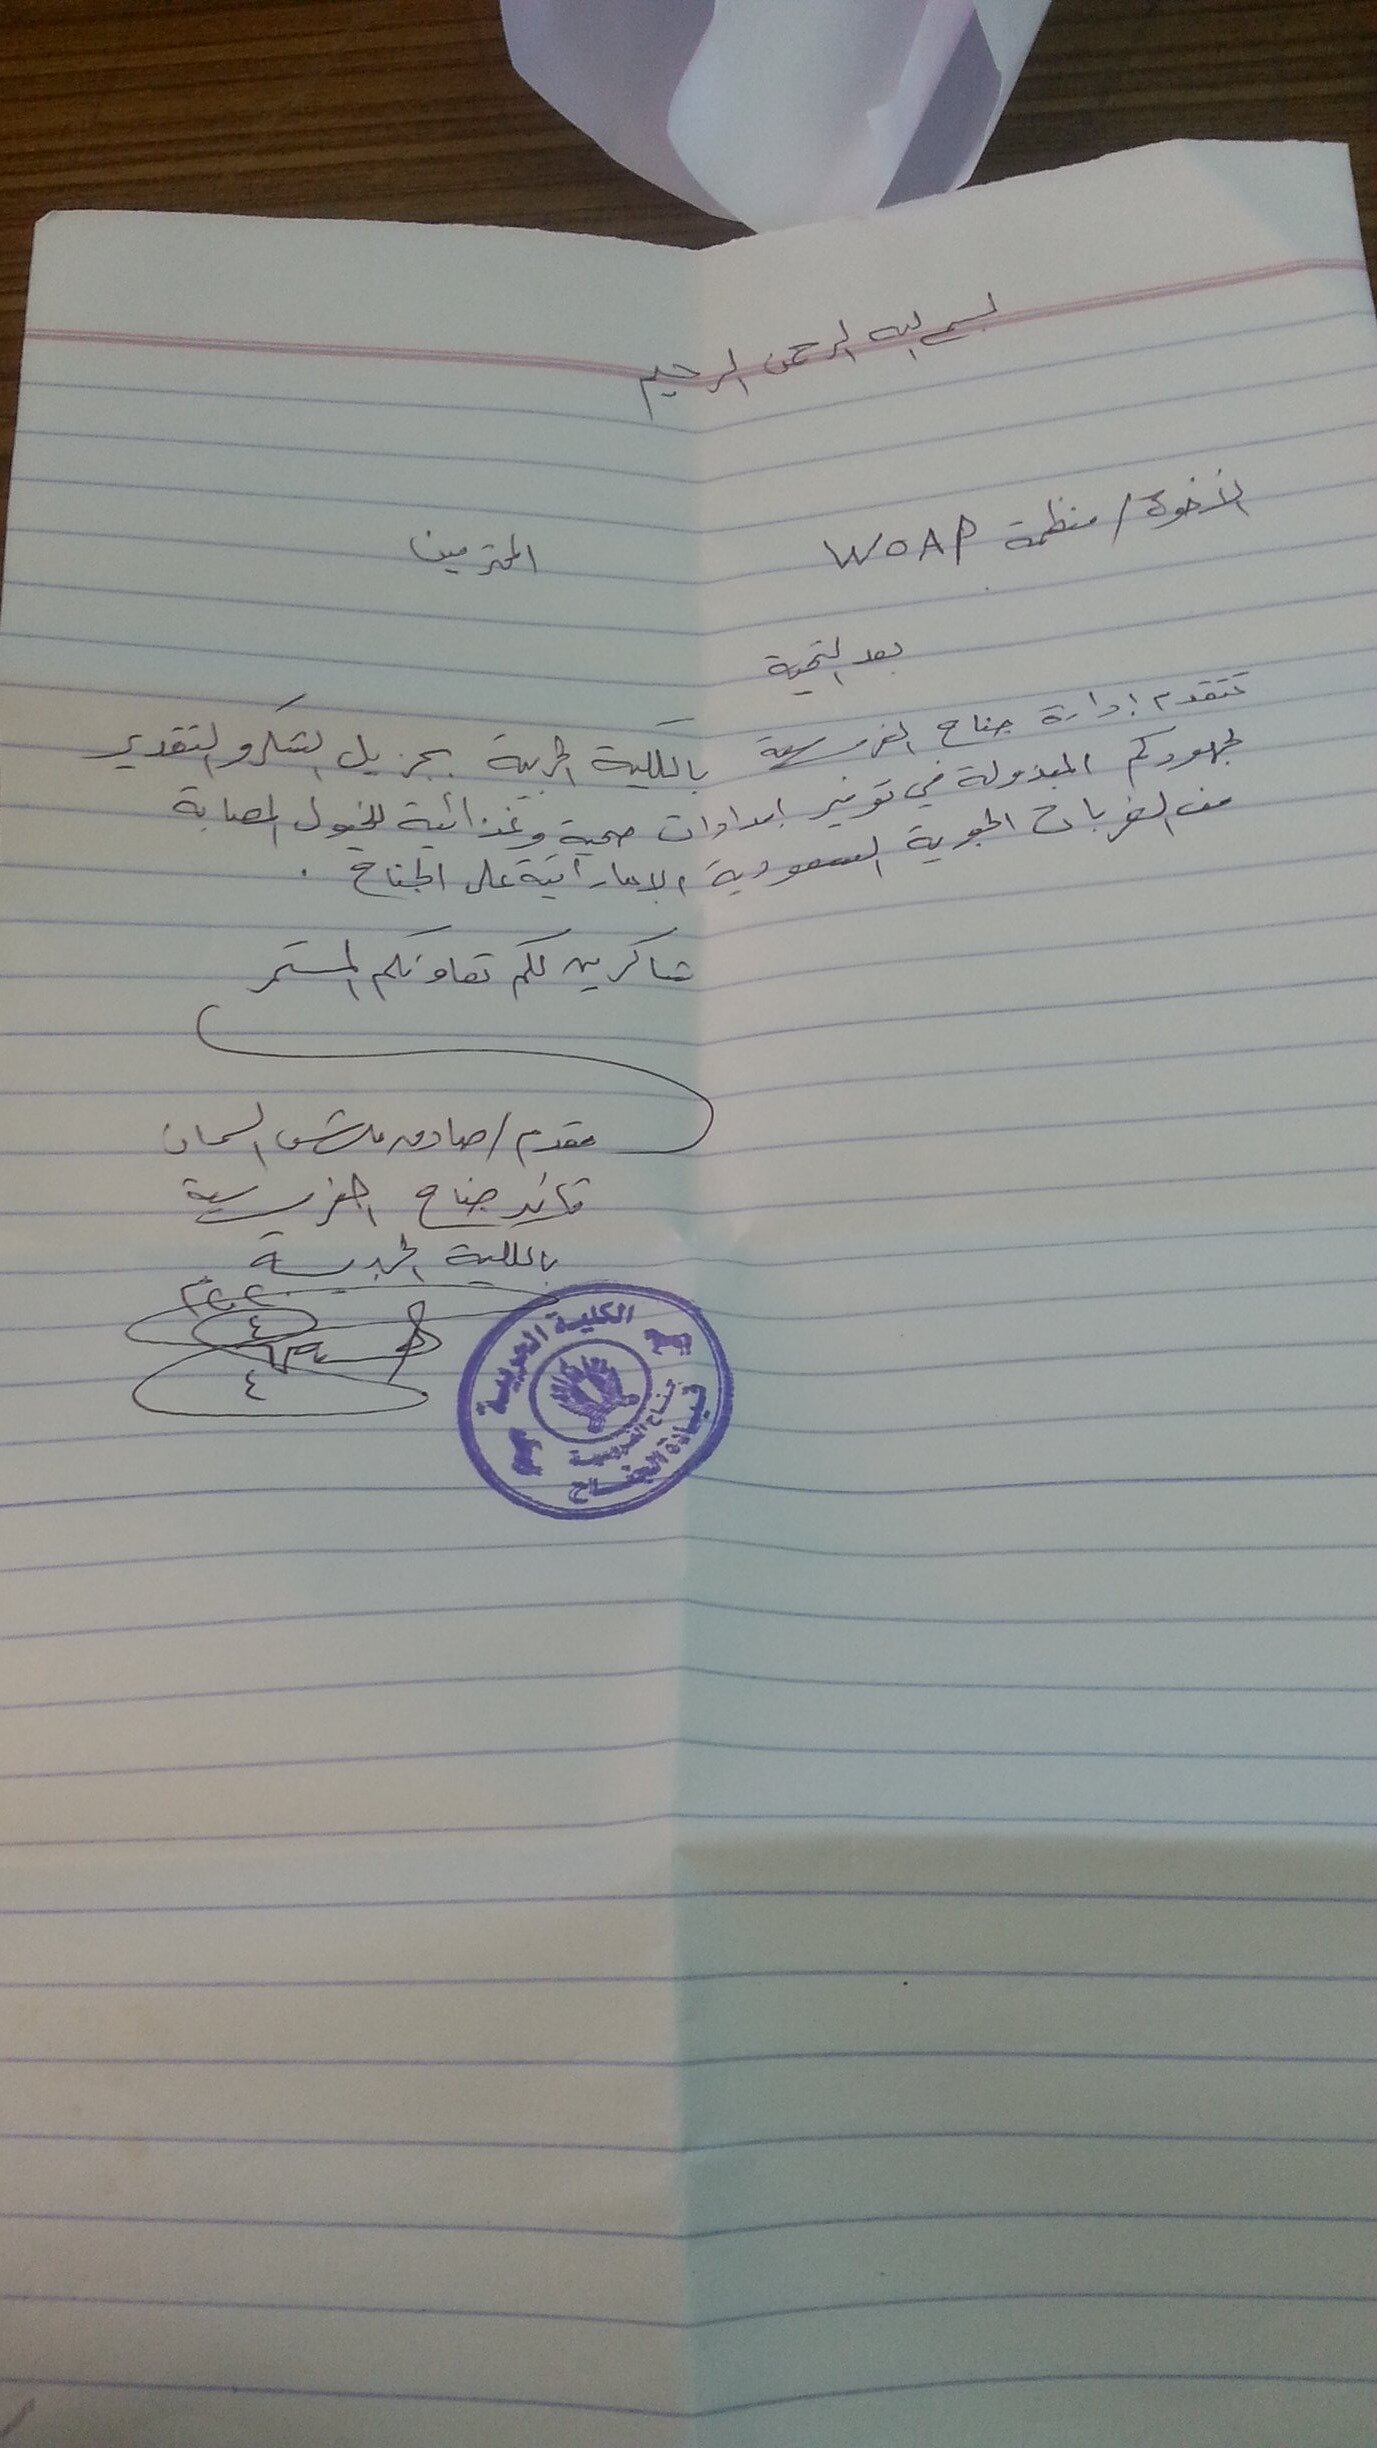 بسم الله الرحمن الرحيم
الأخوة / منظمة WOAP المحترمين
بعد التحية
تتقدم إدارة جناح الفروسية بالكلية الحربية بجزيل الشكر والتقدير
لجهودكم المبذولة في توفير امدادات صحية وغذائية للخيول المصابة
من الضربات الجوية السعودية الاماراتية على الجناح .
شاكرين لكم تعاونكم المستمر
مقدم / صادق السمان
قائد جناح الفروسية
بالكلية الحربية
الكلية الحربية
جناح الفروسية
قيادة الجناح